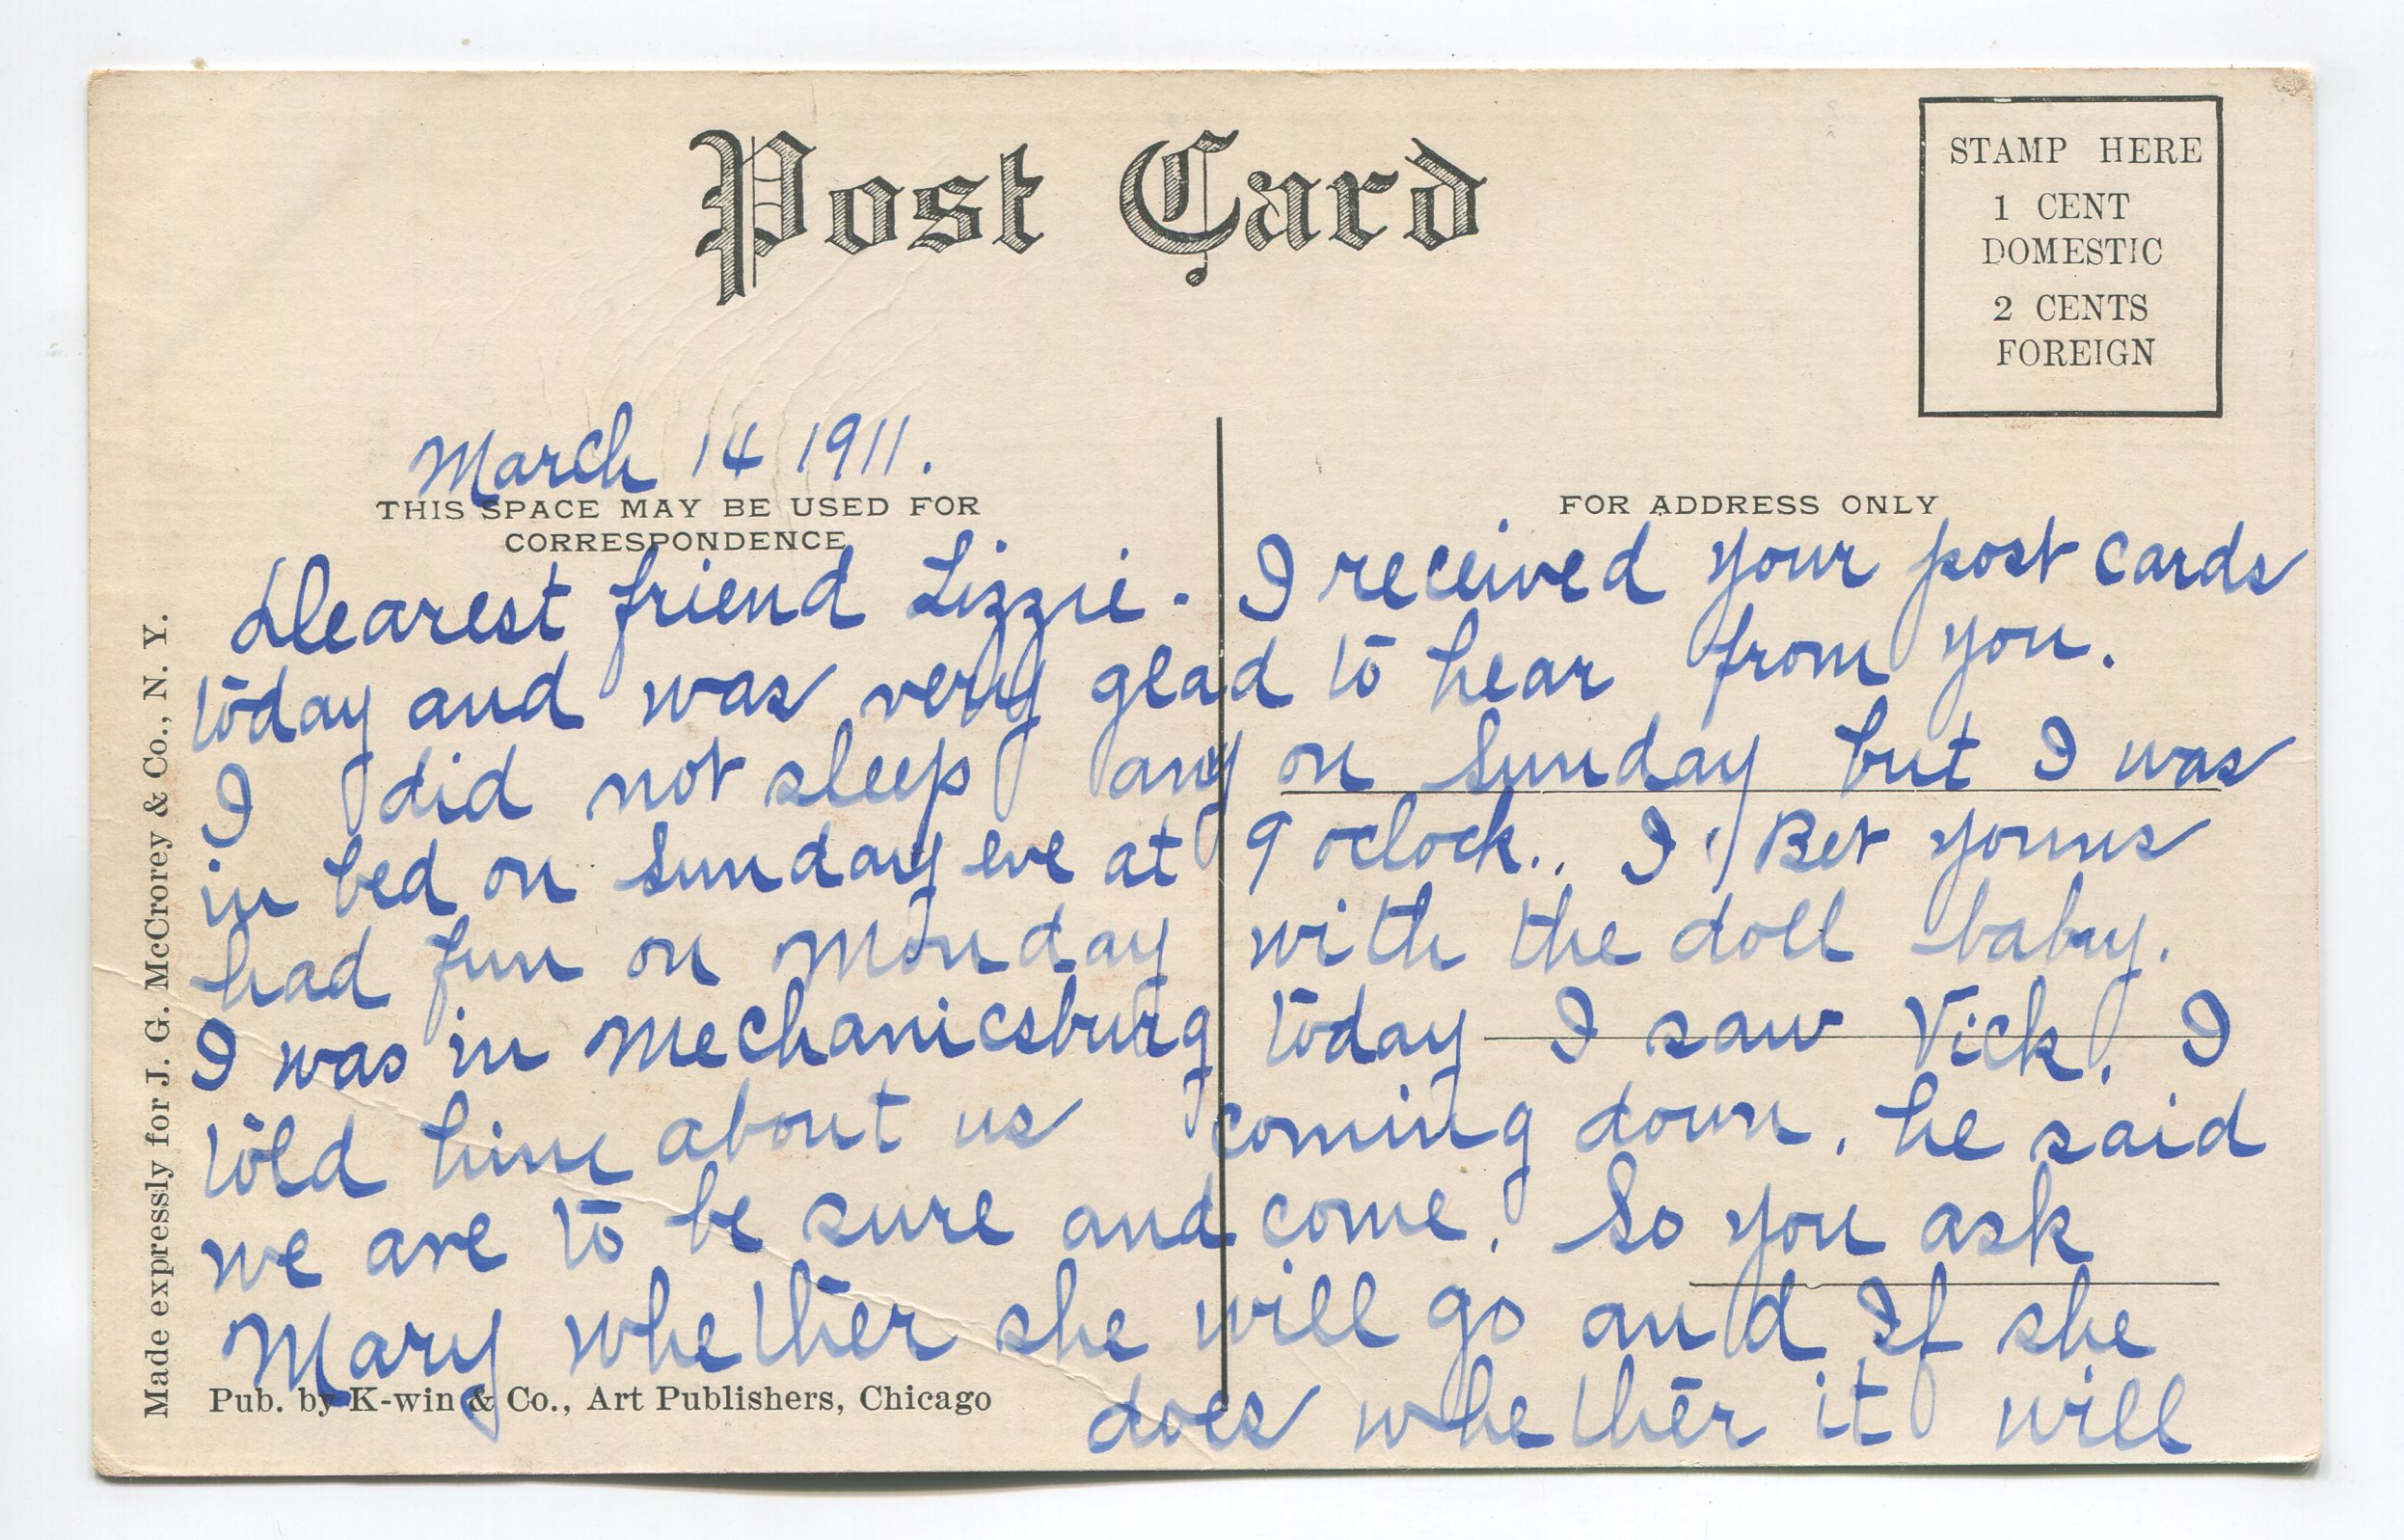 Post Card
STAMP HERE
1 CENT
DOMESTIC
2 CENTS
FOREIGN
March 14 1911.
THIS SPACE MAY BE USED FOR
CORRESPONDENCE
FOR ADDRESS ONLY
Dearest friend Lizzie. I received your post cards
today and was very glad to hear from you.
I did not sleep any on Sunday but I was
in bed on Sunday eve at 9 oclock.. I Bet youns
had fun on Monday with the doll baby.
I was in Mechanicsburg today I saw Vick. I
told him about us coming down. he said
we are to be sure and come. So you ask
Mary whether she will go and If she
does whether it will
Pub. by K-win & Co., Art Publishers, Chicago
Made expressly for J. G. McCrorey & Co., N. Y.